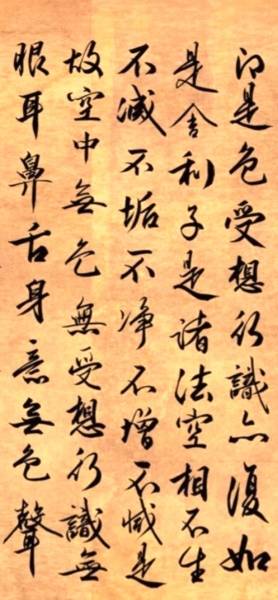 即是色受想行識亦復如
是舍利子是諸法空相不生
不滅不垢不净不增不減是
故空中無色無受想行識無
眼耳鼻舌身意無色聲